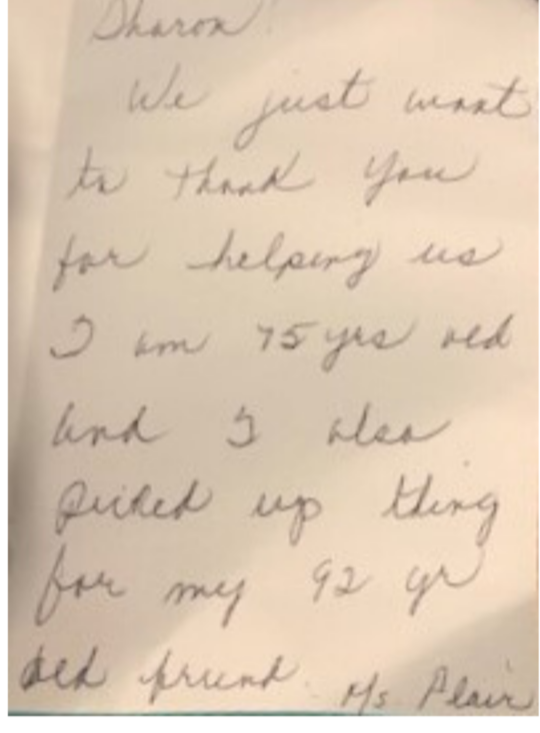 Sharon!
We just want
to thank you
for helping us
I am 75 yrs old
and I also
picked up thing
for my 92 yr
old friend. Ms Plair